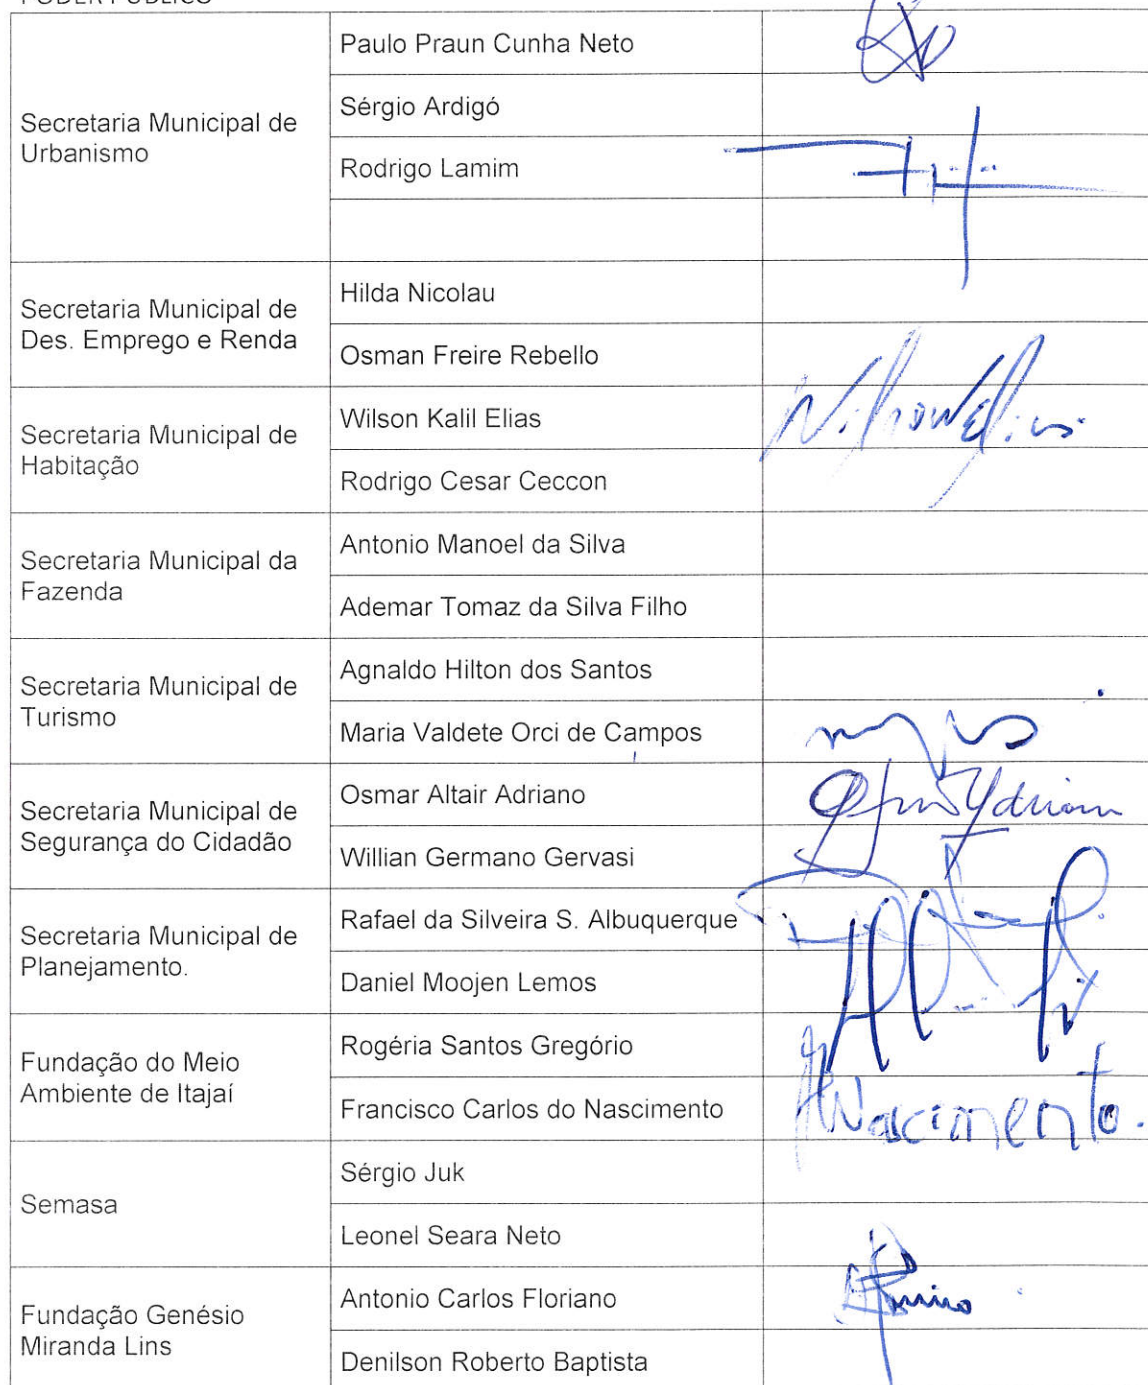 PODER PÚBLICO
Secretaria Municipal de
Urbanismo
Paulo Praun Cunha Neto
Sérgio Ardigó
Rodrigo Lamim
Secretaria Municipal de
Des. Emprego e Renda
Hilda Nicolau
Osman Freire Rebello
Secretaria Municipal de
Habitação
Wilson Kalil Elias
Wilson Elias
Rodrigo Cesar Ceccon
Secretaria Municipal da
Fazenda
Antonio Manoel da Silva
Ademar Tomaz da Silva Filho
Secretaria Municipal de
Turismo
Agnaldo Hilton dos Santos
Maria Valdete Orci de Campos
Secretaria Municipal de
Segurança do Cidadão
Osmar Altair Adriano
Willian Germano Gervasi
Secretaria Municipal de
Planejamento.
Rafael da Silveira S. Albuquerque
Daniel Moojen Lemos
Fundação do Meio
Ambiente de Itajaí
Rogéria Santos Gregório
Francisco Carlos do Nascimento
Nascimento.
Semasa
Sérgio Juk
Leonel Seara Neto
Fundação Genésio
Miranda Lins
Antonio Carlos Floriano
Denilson Roberto Baptista